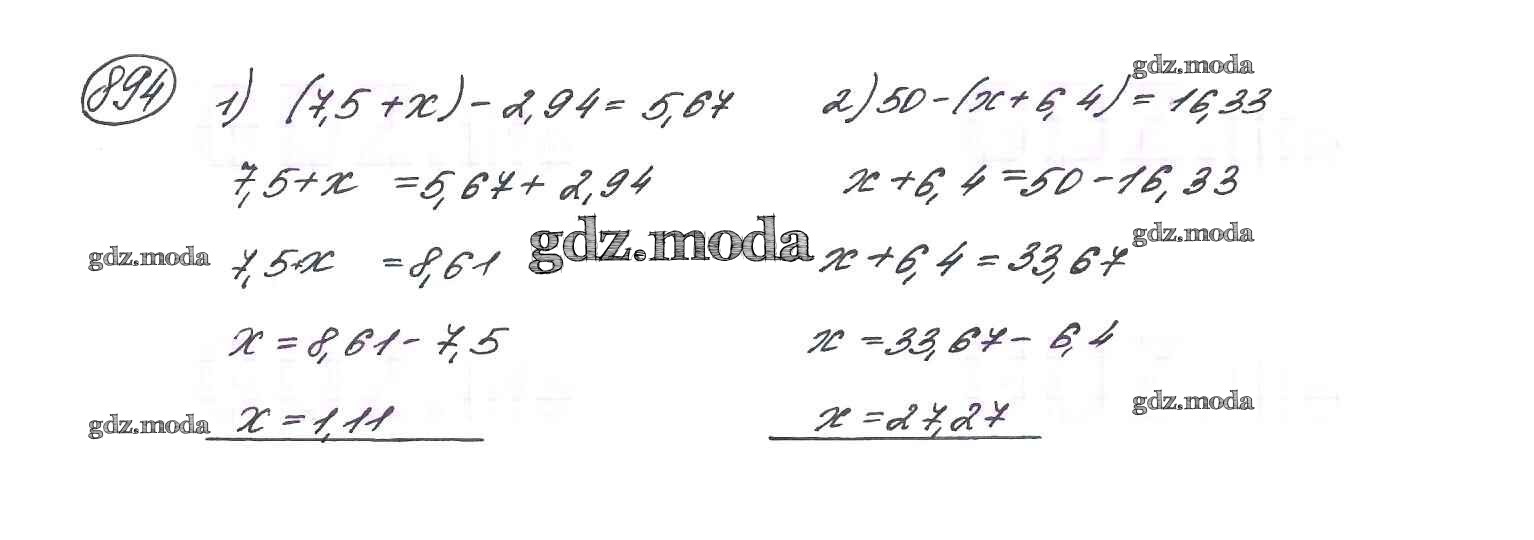 894 1) (7,5+x)-2,94=5,67
7,5+x =5,67+2,94
7,5+x =8,61
x=8,61-7,5
x=1,11
2) 50-(x+6,4)=16,33
x+6,4=50-16,33
x+6,4=33,67
x=33,67-6,4
x=27,27
gdz.moda
gdz.moda
gdz.moda
gdz.moda
gdz.moda
gdz.moda